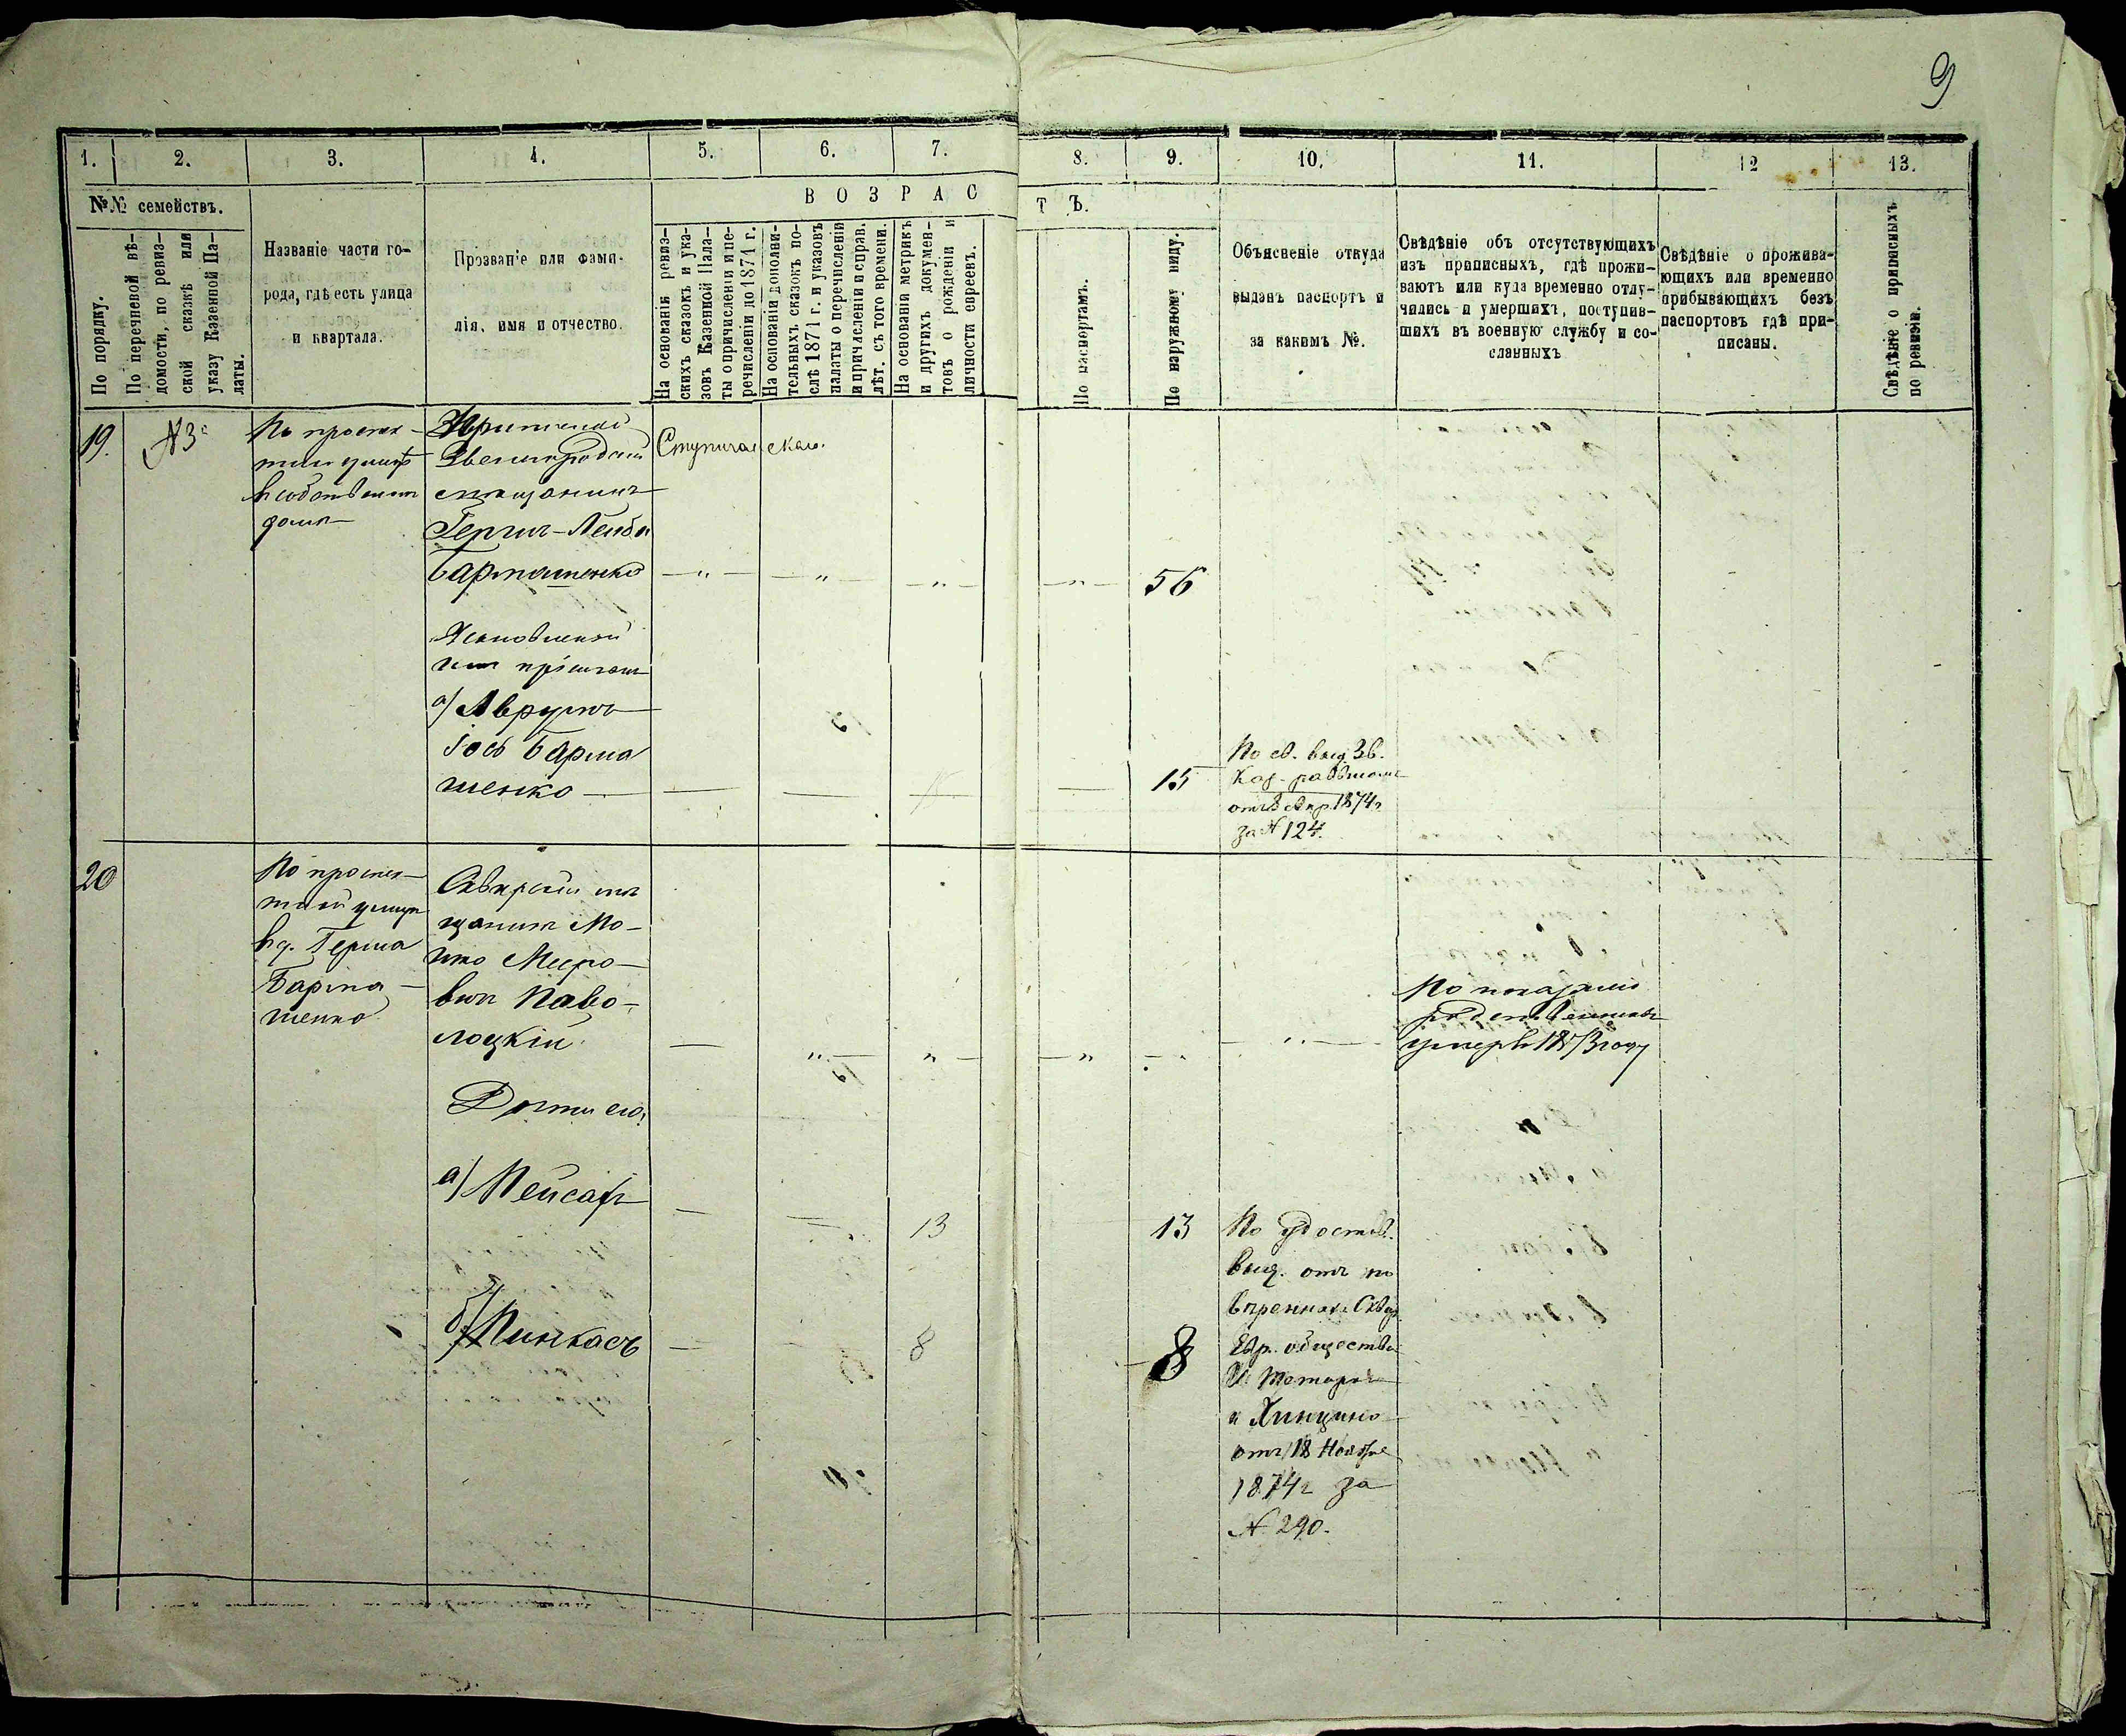 9
1. 2. 3. 4. 5. 6. 7. 8. 9. 10. 11. 12 13.
№№ семействъ.
По порядку.
По перечневой вѣ-
домости, по ревиз-
ской сказкѣ или
указу Казенной Па-
латы.
Названіе части го-
рода, гдѣ есть улица
и квартала.
Прозваніе или фами-
лія, имя и отчество.
ВОЗРАСТЪ.
На основаніи ревиз-
скихъ сказокъ и ука-
зовъ Казенной Пала-
ты о причисленіи и пе-
речисленіи до 1871 г.
На основаніи дополни-
тельныхъ сказокъ по-
слѣ 1871 г. и указовъ
палаты о перечисленіи
и причисленіи и справ.
лѣт. съ того времени.
На основаніи метрикъ
и другихъ докумен-
товъ о рожденіи и
личности евреевъ.
По паспортамъ.
По наружному виду.
Объясненіе откуда
выданъ паспортъ и
за какимъ №.
Свѣдѣніе объ отсутствующихъ
изъ приписныхъ, гдѣ прожи-
ваютъ или куда временно отлу-
чились и умершихъ, поступив-
шихъ въ военную службу и со-
сланныхъ
Свѣдѣніе о прожива-
ющихъ или временно
прибывающихъ безъ
паспортовъ гдѣ при-
писаны.
Свѣдѣніе о приписныхъ
по ревизіи.
19. №3
По проспек-
в собственном
доме
Звенигородскій
мещанинъ
Гершъ-Лейба
Барташенко — „ — — „ — — „ — — „ — 56
а) Аврумъ
Іось Барта
шенко — — — — — 15
По св. выд. Зв.
Каз. раввиномъ
1874 г.
за № 124.
20
По проспек-
в д. Герша
Барта-
шенко
Сквирскій мѣ
щанинъ Мо-
шко Мееро-
вич Паво-
лоцкій
По показанію
родственниковъ
умеръ в 1873 году
Дети его:
а) Пейсахъ — — 13 13
б) Пинкасъ — — 8 8
По удостов.
выд. отъ по
вѣренныхъ Сквир.
Евр. общества
отъ 18 Ноября
1874 г за
№ 290.